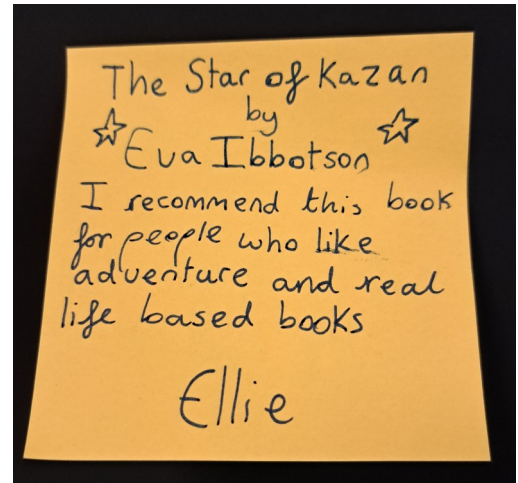 The Star of Kazan
by
Eva Ibbotson
I recommend this book
for people who like
adventure and real
life based books
Ellie